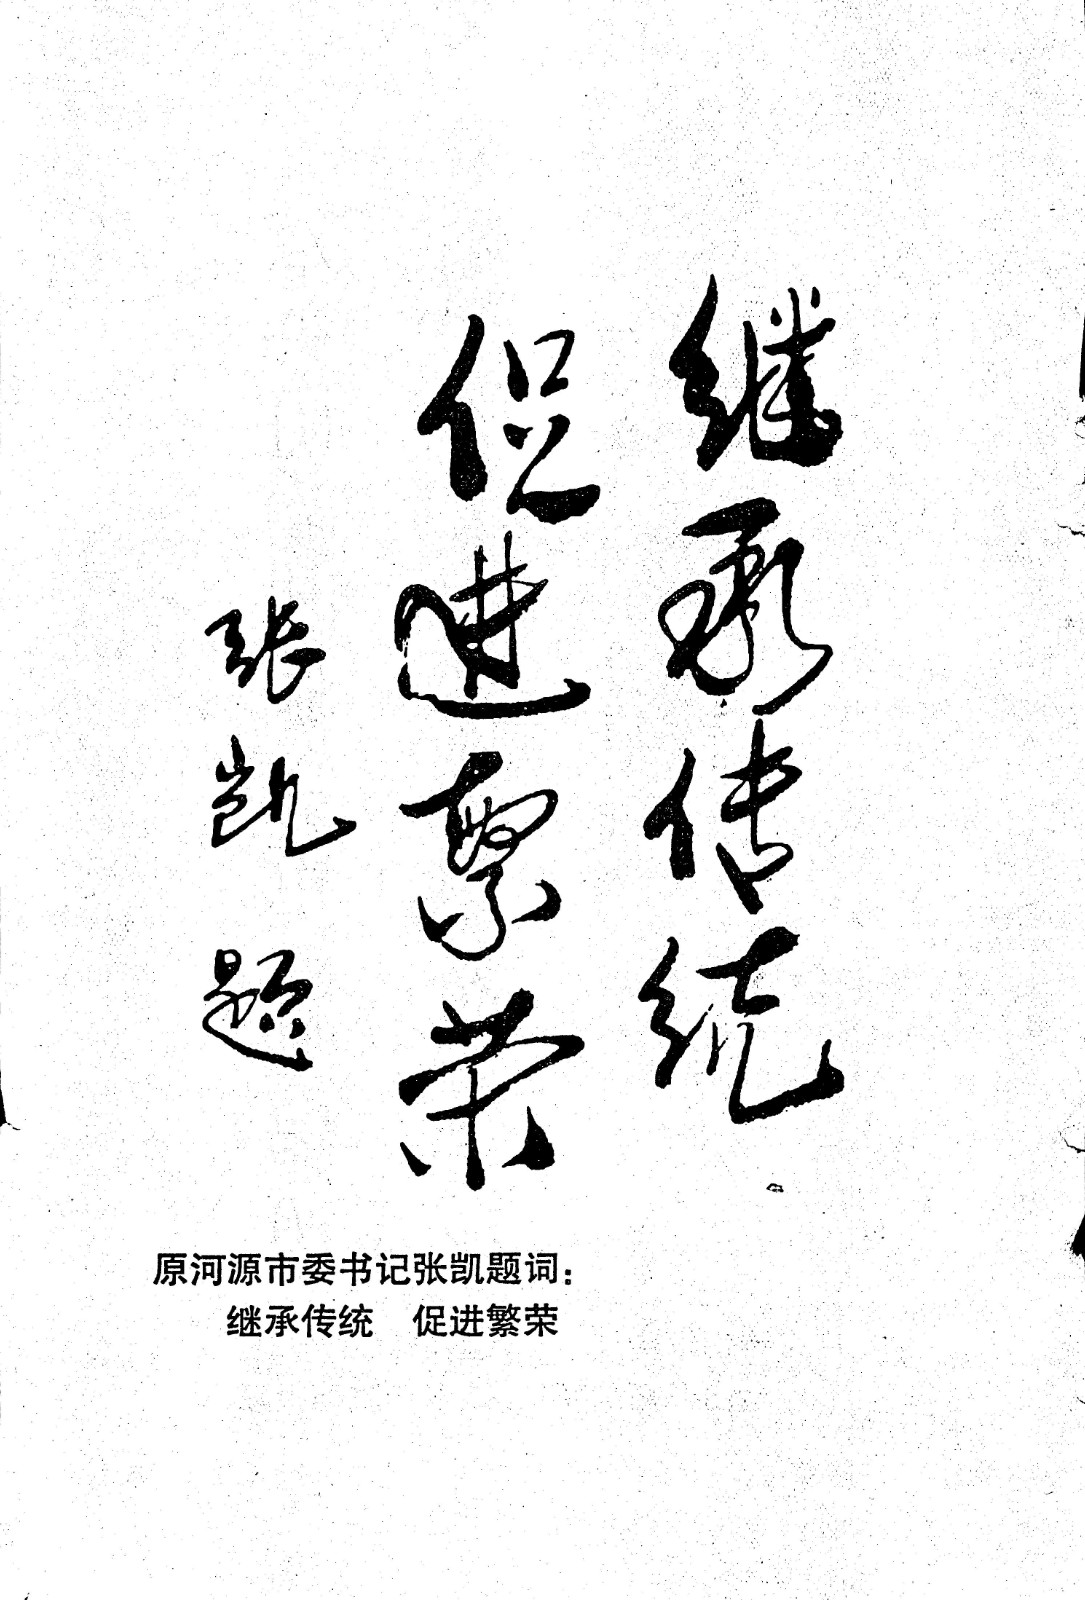 继承传统
促进繁荣
张凯题
原河源市委书记张凯题词：
继承传统　促进繁荣